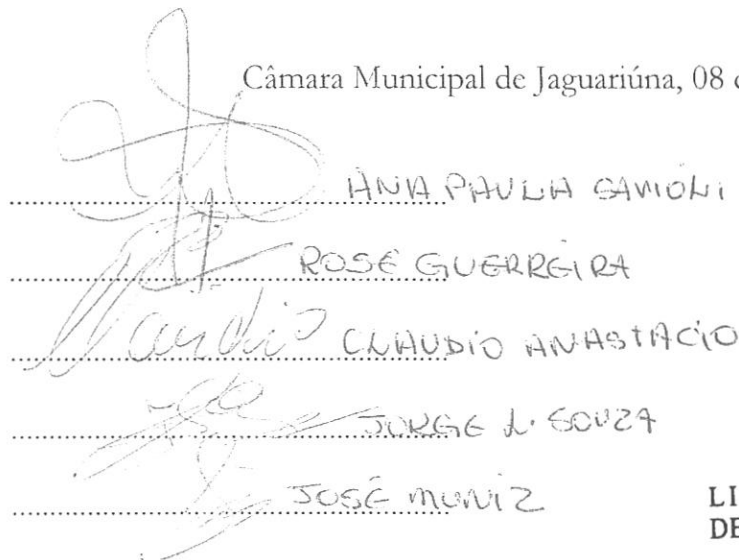 Câmara Municipal de Jaguariúna, 08
ANA PAULA
ROSE GUERREIRA
Claudio CLAUDIO ANASTACIO
JORGE L. SOUZA
JOSÉ MUNIZ
LI
DE